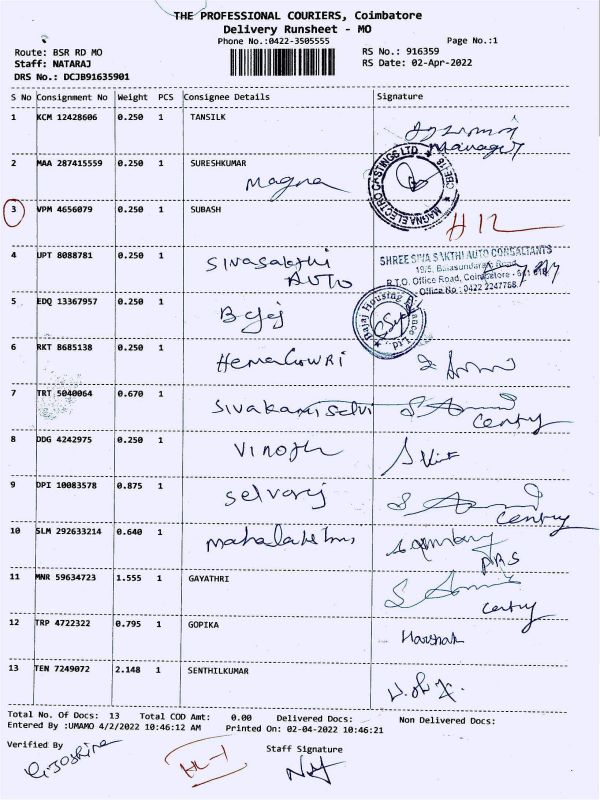 THE PROFESSIONAL COURIERS, Coimbatore
Delivery Runsheet - MO
Phone No.:0422-3505555
Page No.:1
Route: BSR RD MO
RS No.: 916359
Staff: NATARAJ
RS Date: 02-Apr-2022
DRS No.: DCJB91635901
S No Consignment No Weight PCS Consignee Details Signature
1 KCM 12428606 0.250 1 TANSILK
Manager
2 MAA 287415559 0.250 1 SURESHKUMAR
Magna
MAGNA ELECTRO CASTINGS LTD
CBE-18
3 VPM 4656079 0.250 1 SUBASH
4 UPT 8088781 0.250 1 Sivasakthi
AUTO
SHREE SIVA SAKTHI AUTO CONSALTANTS
19/5, Balasundaram Road,
R.T.O. Office Road, Coimbatore - 641 018
Office No : 0422 2247788
5 EDQ 13367957 0.250 1 Bajaj
Bajaj Housing
6 RKT 8685138 0.250 1 HemaGowri
7 TRT 5040064 0.670 1 Sivakamiselvi
Centry
8 DDG 4242975 0.250 1 Vinoth
9 DPI 10083578 0.875 1 Selvaraj
Centry
10 SLM 292633214 0.640 1 mahalakshmi
11 MNR 59634723 1.555 1 GAYATHRI
Centry
12 TRP 4722322 0.795 1 GOPIKA
Harshak
13 TEN 7249072 2.148 1 SENTHILKUMAR
Total No. Of Docs: 13 Total COD Amt: 0.00 Delivered Docs: Non Delivered Docs:
Entered By :UMAMO 4/2/2022 10:46:12 AM Printed On: 02-04-2022 10:46:21
Verified By
Staff Signature